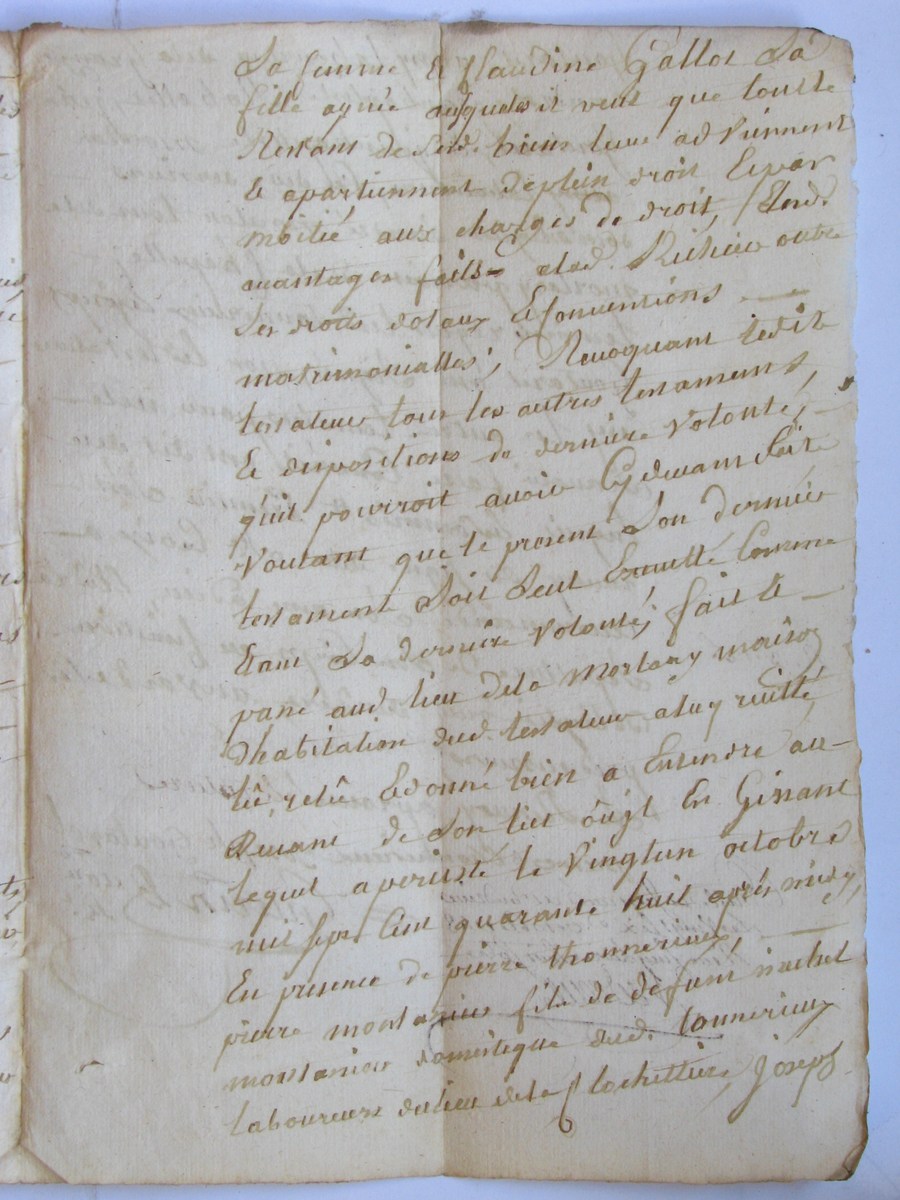 Sa femme et Claudine Gallot Sa
fille aynée ausquelles il veut que tout le
Restant de Sesd. biens leur adviennent
et apartiennent de plein droit Et par
moitié aux charges de droit, Et aud.
avantages faits alad. Richiere outre
Ses droits dotaux Et Conventions
matrimonialles, Revoquant ledit
testateur tous les autres testaments,
Et dispositions de derniere volonté,
quil pourroit avoir Cydevant fait
Voulant que le present Son dernier
testament Soit Seul Executté Comme
Etant Sa derniere volonté, fait &
passé aud. lieu dela Mortary maison
dhabitation dud. testateur a luy recitté,
lû, relû, Et donné bien a Entendre au
devant de Son lict où il Est Gissant
lequel a persisté le vingt un octobre
mil Sept Cent quarante huit après midy,
En presence de pierre thonnerieux,
pierre montanier fils de defunt michel
montanier domestique dud. tonnerieux
laboureurs du lieu dela Clochettiere, Joseph